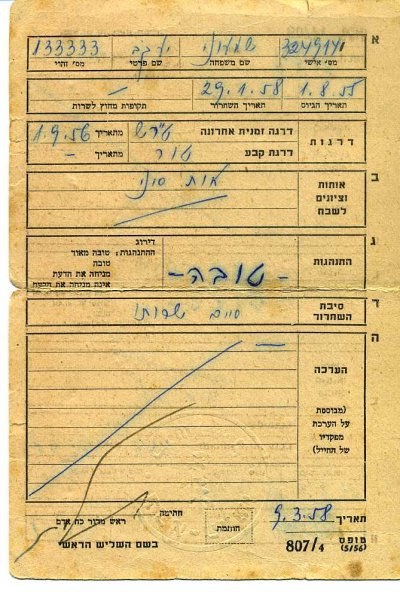 א
שמעוני יעקב 133333
מס' אישי שם משפחה שם פרטי מס' זהוי
1.8.55 29.1.58 —
תאריך הגיוס תאריך השחרור תקופות מחוץ לשרות
דרגות
דרגה זמנית אחרונה טר"ש מתאריך 1.9.56
דרגת קבע טור מתאריך —
ב
אותות וציונים לשבח
אות סיני
ג
התנהגות
דירוג ההתנהגות: טובה מאוד
טובה
מניחה את הדעת
אינה מניחה את הדעת
- טובה -
ד
סיבת השחרור
סיים שרותו
ה
—
הערכה
(מבוססת
על הערכת
מפקדיו
של החייל)
תאריך 9.3.58
חותמת
חתימה
ראש מדור כח אדם
בשם השליש הראשי
טופס 807/4
(5/56)